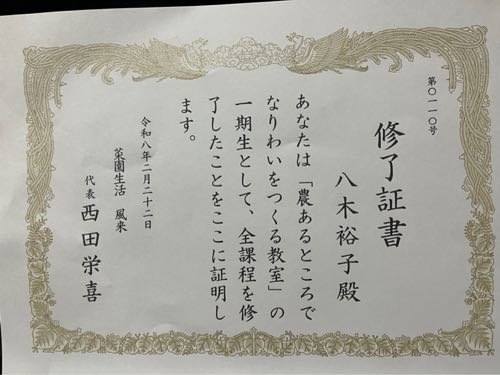 第〇一一〇号
修了証書
八木裕子殿
あなたは「農あるところで
なりわいをつくる教室」の
一期生として、全課程を修
了したことをここに証明し
ます。
令和八年二月二十二日
菜園生活 風来
代表 西田栄喜